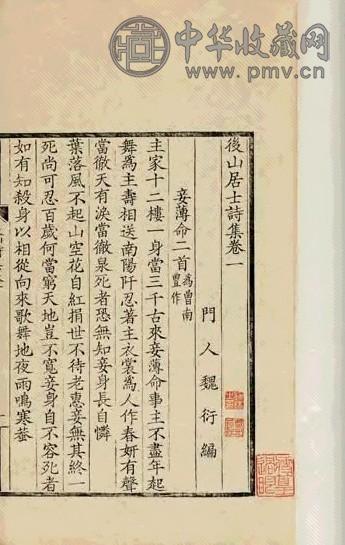 中华收藏网
www.pmv.cn
後山居士詩集卷一
門人魏衍編
妾薄命二首爲曾南豐作
主家十二樓一身當三千古來妾薄命事主不盡年起
舞爲主壽相送南陽阡忍著主衣裳爲人作春妍有聲
當徹天有淚當徹泉死者恐無知妾身長自憐
葉落風不起山空花自紅捐世不待老惠妾無其終一
死尚可忍百歲何當窮天地豈不寬妾身自不容死者
如有知殺身以相從向來歌舞地夜雨鳴寒蛬